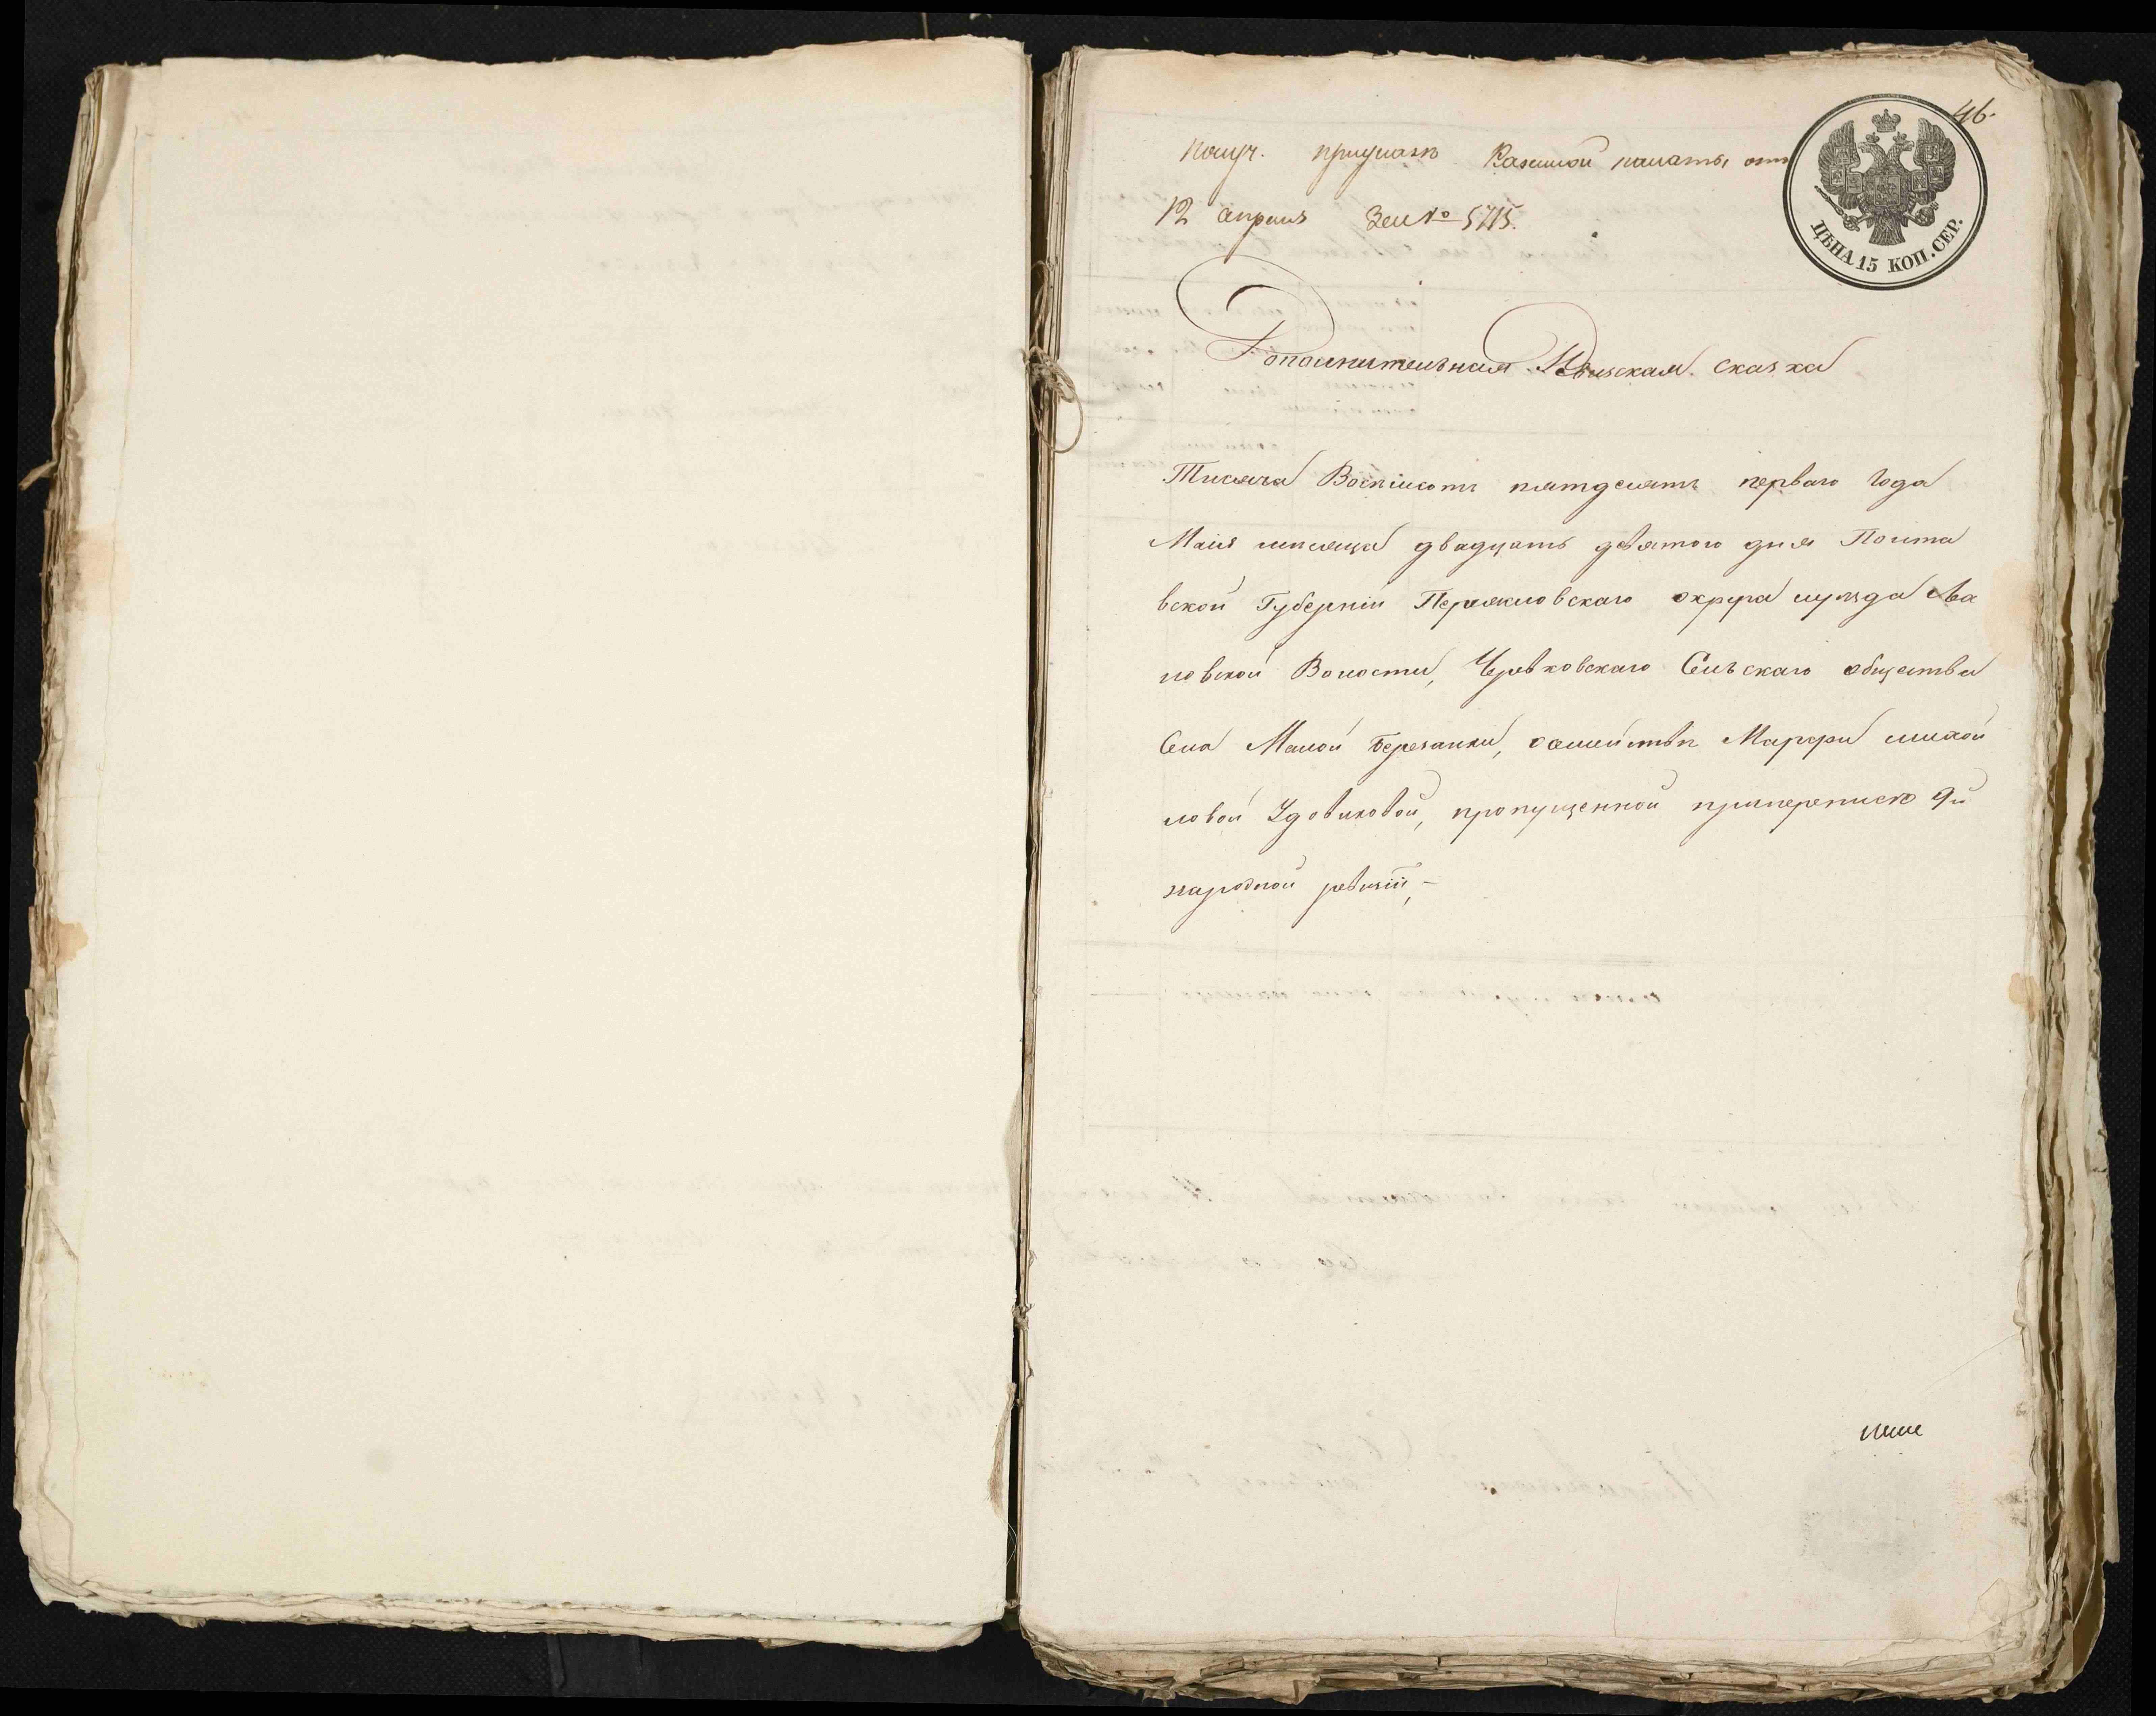 46.
Получ. при указѣ Казенной палаты отъ
12 апрѣля За № 5715.
ЦѢНА 15 КОП. СЕР.
Дополнительная Ревизская сказка
Тисяча Восѣмсотъ пятдесятъ перваго Года
Маія мѣсяца двадцать девятого дня Полта
вской Губерніи Переяславскаго округа уѣзда
Волости, Черевковскаго Сельскаго общества
Села Малой Березанки, о семействѣ Марфи михай
ловой Удовиковой, пропущенной приперепискѣ 9й
народной ревизіи,-